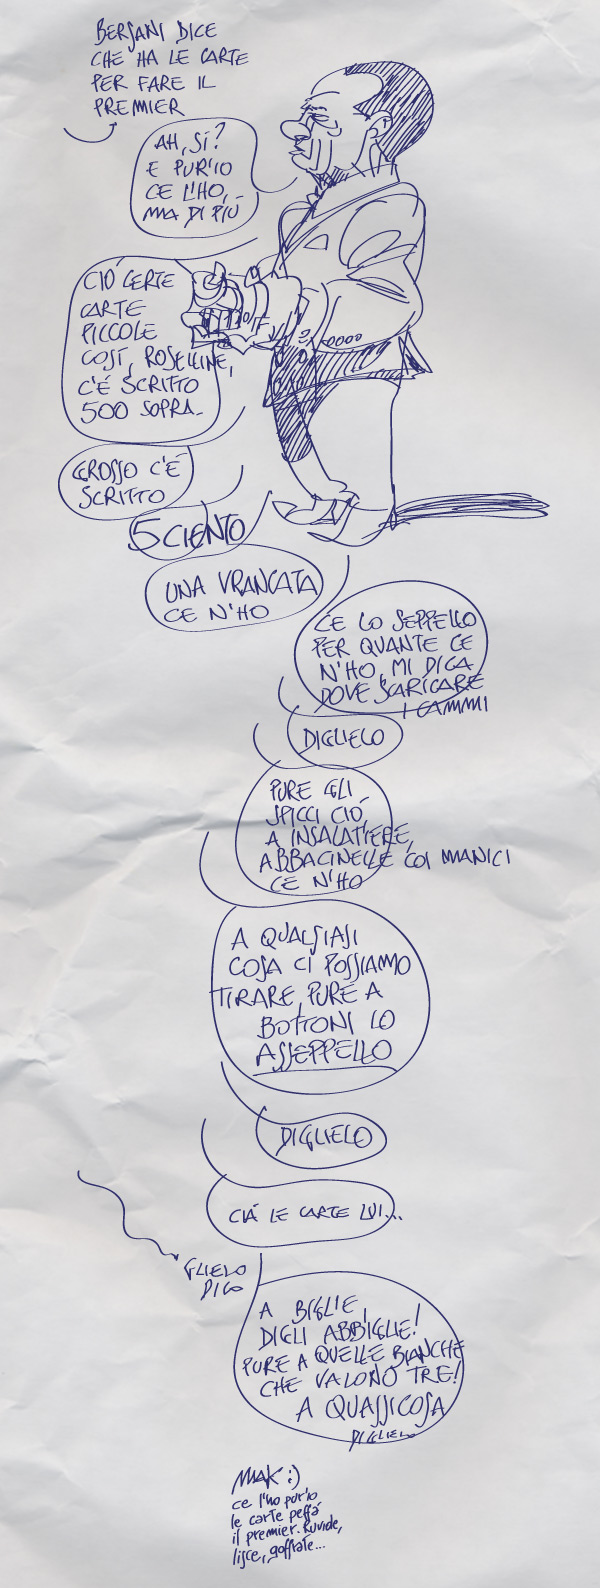 BERSANI DICE
CHE HA LE CARTE
PER FARE IL
PREMIER
AH, SÍ?
E PUR'IO
CE L'HO,
MA DI PIÚ
CIÓ CERTE
CARTE
PICCOLE
COSÍ, ROSELLINE,
C'É SCRITTO
500 SOPRA..
GROSSO C'É
SCRITTO
5CIENTO
UNA VRANCATA
CE N'HO
CE LO SEPPELLO
PER QUANTE CE
N'HO, MI DICA
DOVE SCARICARE
I CAMMI
DIGLIELO
PURE GLI
SPICCI CIÓ,
A INSALATIERE,
ABBACINELLE COI MANICI
CE N'HO
A QUALSIASI
COSA CI POSSIAMO
TIRARE, PURE A
BOTTONI LO
ASSEPPELLO
DIGLIELO
CIÁ LE CARTE LUI...
GLIELO
DICO
A BIGLIE,
DIGLI ABBIGLIE!
PURE A QUELLE BIANCHE
CHE VALONO TRE!
A QUASSICOSA
DIGLIELO
MAK :)
ce l'ho pur'io
le carte peffá
il premier. Ruvide,
lisce, goffrate...